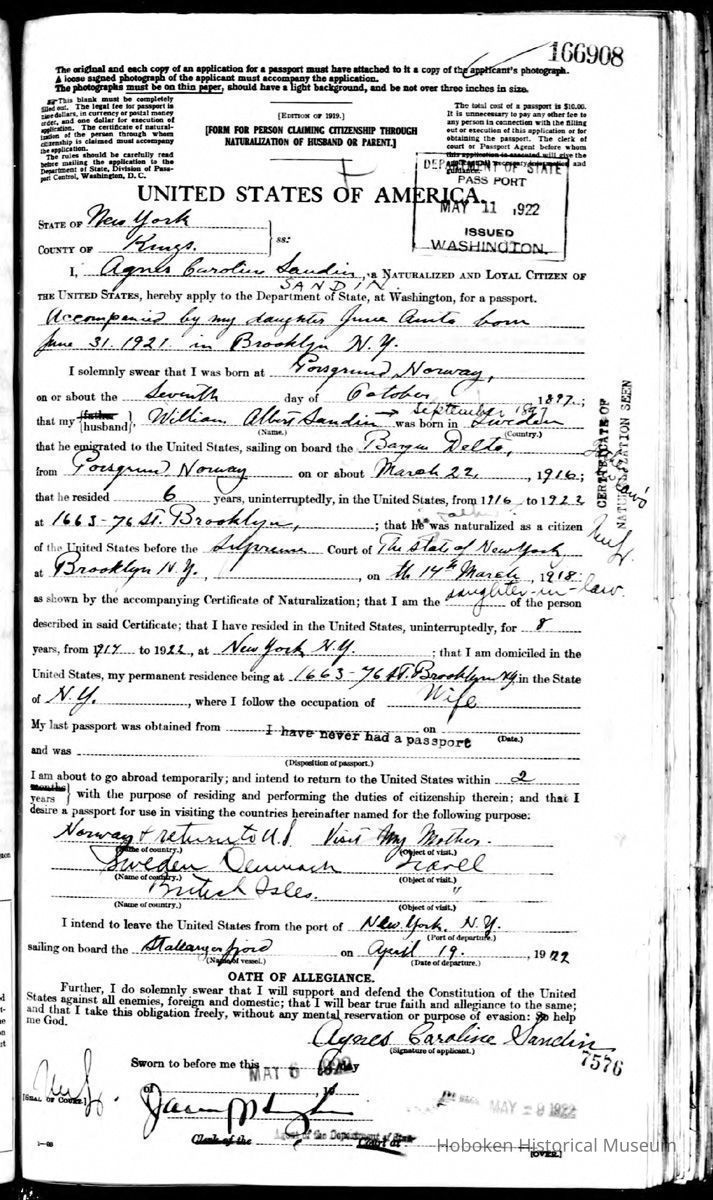 166908
The original and each copy of an application for a passport must have attached to it a copy of the applicant's photograph.
A loose signed photograph of the applicant must accompany the application.
The photographs must be on thin paper, should have a light background, and be not over three inches in size.
This blank must be completely
filled out. The legal fee for passport is
nine dollars, in currency or postal money
order, and one dollar for execution of
application. The certificate of natural-
ization of the person through whom
citizenship is claimed must accompany
the application.
The rules should be carefully read
before mailing the application to the
Department of State, Division of Pass-
port Control, Washington, D. C.
[EDITION OF 1919.]
[FORM FOR PERSON CLAIMING CITIZENSHIP THROUGH
NATURALIZATION OF HUSBAND OR PARENT.]
The total cost of a passport is $10.00.
It is unnecessary to pay any other fee to
any person in connection with the filling
out or execution of this application or for
obtaining the passport. The clerk of
court or Passport Agent before whom
this application is executed will give the
applicant necessary information and
guidance.
DEPARTMENT OF STATE
PASSPORT
MAY 11 1922
ISSUED
WASHINGTON.
UNITED STATES OF AMERICA.
STATE OF New York
COUNTY OF Kings. } ss:
I, Agnes Caroline Sandin, a NATURALIZED AND LOYAL CITIZEN OF
SANDIN.
THE UNITED STATES, hereby apply to the Department of State, at Washington, for a passport.
Accompanied by my daughter June Anita born
June 31. 1921. in Brooklyn N.Y.
I solemnly swear that I was born at Porsgrund, Norway,
on or about the Seventh day of October, 1897;
that my {father husband}, William Albert Sandin → September 1897 was born in Sweden
(Name.) (Country.)
that he emigrated to the United States, sailing on board the Barque Delta,
from Porsgrund Norway on or about March 22, 1916;
that he resided 6 years, uninterruptedly, in the United States, from 1916 to 1922
at 1663-76 St. Brooklyn,; that he was naturalized as a citizen
of the United States before the Supreme Court of The State of New York
at Brooklyn N.Y., on th 14th March, 1918.
as shown by the accompanying Certificate of Naturalization; that I am the daughter-in-law. of the person
described in said Certificate; that I have resided in the United States, uninterruptedly, for 8
years, from 1914 to 1922, at New York N.Y.; that I am domiciled in the
United States, my permanent residence being at 1663-76 St. Brooklyn NY. in the State
of N.Y., where I follow the occupation of Wife
My last passport was obtained from I have never had a passport on
(Date.)
and was
(Disposition of passport.)
I am about to go abroad temporarily; and intend to return to the United States within 2
{months years} with the purpose of residing and performing the duties of citizenship therein; and that I
desire a passport for use in visiting the countries hereinafter named for the following purpose:
Norway & return to U.S Visit My Mother.
(Name of country.) (Object of visit.)
Sweden Denmark Travel
(Name of country.) (Object of visit.)
British Isles. "
(Name of country.) (Object of visit.)
I intend to leave the United States from the port of New York, N.Y.
(Port of departure.)
sailing on board the Stavangerfjord on April 19., 1922
(Name of vessel.) (Date of departure.)
OATH OF ALLEGIANCE.
Further, I do solemnly swear that I will support and defend the Constitution of the United
States against all enemies, foreign and domestic; that I will bear true faith and allegiance to the same;
and that I take this obligation freely, without any mental reservation or purpose of evasion: So help
me God.
Agnes Caroline Sandin
(Signature of applicant.)
7576
Sworn to before me this MAY 6 1922 day
of, 19
[SEAL OF COURT.]
MAY 9 1922
Agent of the Department of State
Clerk of the Court at
[OVER.]
CERTIFICATE OF
NATURALIZATION SEEN
Hoboken Historical Museum